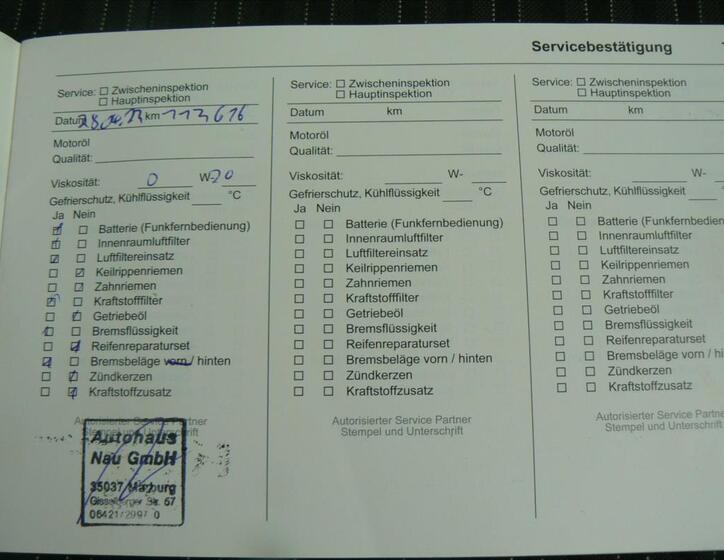 Servicebestätigung
Service: ☐ Zwischeninspektion
☐ Hauptinspektion
Datum 28.04. km 113 616
Motoröl
Qualität:
Viskosität: 0 W-20
Gefrierschutz, Kühlflüssigkeit °C
Ja Nein
Batterie (Funkfernbedienung)
Innenraumluftfilter
Luftfiltereinsatz
Keilrippenriemen
Zahnriemen
Kraftstofffilter
Getriebeöl
Bremsflüssigkeit
Reifenreparaturset
Bremsbeläge vorn / hinten
Zündkerzen
Kraftstoffzusatz
Autorisierter Service Partner
Stempel und Unterschrift
Autohaus
Nau GmbH
35037 Marburg
Gisselberger Str. 57
06421/2997 0
Service: ☐ Zwischeninspektion
☐ Hauptinspektion
Datum km
Motoröl
Qualität:
Viskosität: W-
Gefrierschutz, Kühlflüssigkeit °C
Ja Nein
☐ ☐ Batterie (Funkfernbedienung)
☐ ☐ Innenraumluftfilter
☐ ☐ Luftfiltereinsatz
☐ ☐ Keilrippenriemen
☐ ☐ Zahnriemen
☐ ☐ Kraftstofffilter
☐ ☐ Getriebeöl
☐ ☐ Bremsflüssigkeit
☐ ☐ Reifenreparaturset
☐ ☐ Bremsbeläge vorn / hinten
☐ ☐ Zündkerzen
☐ ☐ Kraftstoffzusatz
Autorisierter Service Partner
Stempel und Unterschrift
Service: ☐ Zwischeninspektion
☐ Hauptinspektion
Datum km
Motoröl
Qualität:
Viskosität: W-
Gefrierschutz, Kühlflüssigkeit
Ja Nein
☐ ☐ Batterie (Funkfernbedienun
☐ ☐ Innenraumluftfilter
☐ ☐ Luftfiltereinsatz
☐ ☐ Keilrippenriemen
☐ ☐ Zahnriemen
☐ ☐ Kraftstofffilter
☐ ☐ Getriebeöl
☐ ☐ Bremsflüssigkeit
☐ ☐ Reifenreparaturset
☐ ☐ Bremsbeläge vorn / hi
☐ ☐ Zündkerzen
☐ ☐ Kraftstoffzusatz
Autorisierter Service Partner
Stempel und Unterschrift